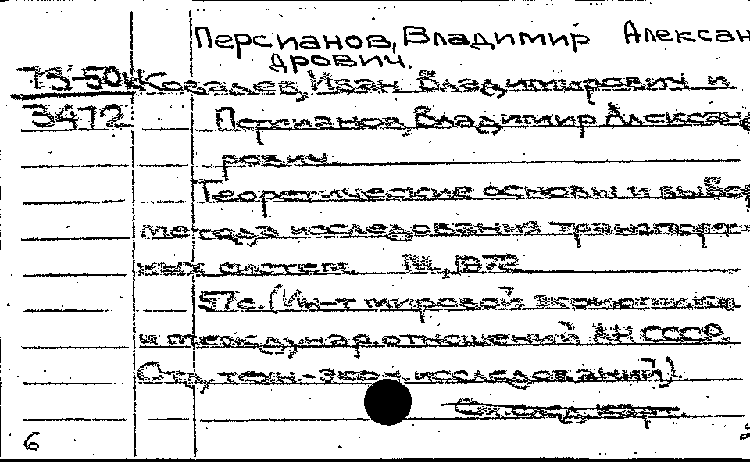 Персианов, Владимир Алексан
дрович.
75-50к Ковалев, Иван Владимирович и
3472 Персианов, Владимир Александ
рович.
Теоретические основы и выбор
метода исследования транспорт-
ных систем. М., 1972
57с. (Ин-т мировой экономики
и междунар. отношений АН СССР.
Отд. техн.-экон. исследований)
См. след. кар.
6